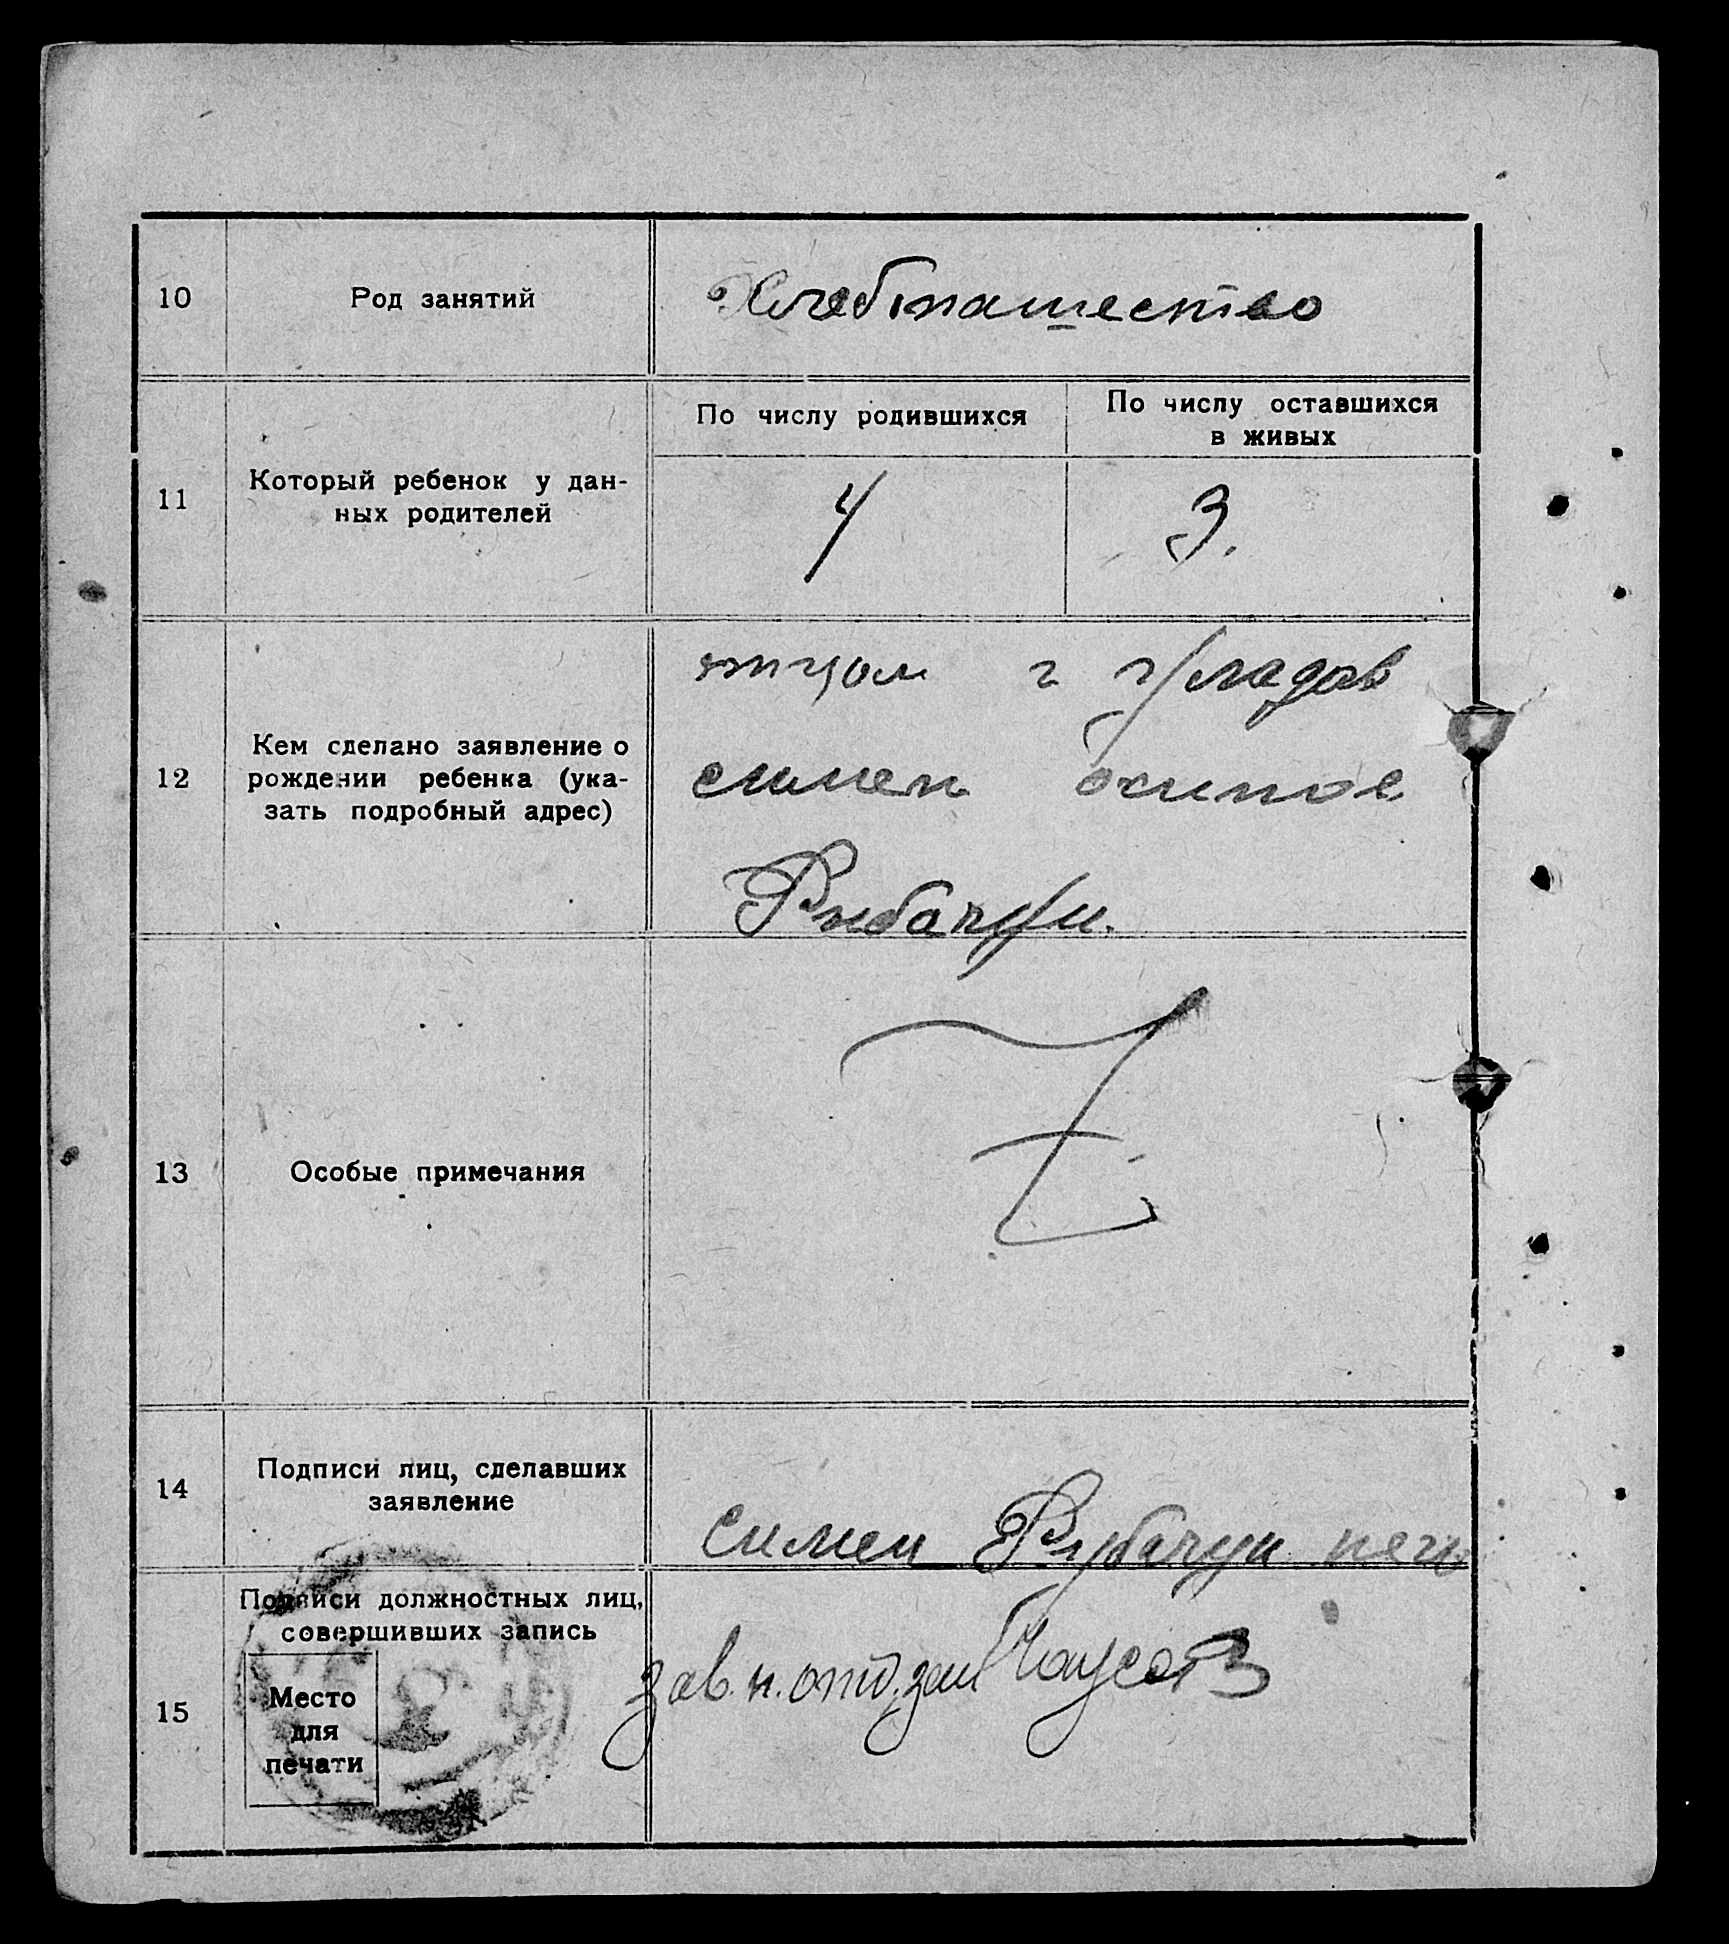 10
Род занятий
Хлебпашество
11
Который ребенок у дан-
ных родителей
По числу родившихся
По числу оставшихся
в живых
4
3.
12
Кем сделано заявление о
рождении ребенка (ука-
зать подробный адрес)
отцом г
симен осипов
Рыбачун.
13
Особые примечания
14
Подписи лиц, сделавших
заявление
симен Рыбачун
15
Подписи должностных лиц,
совершивших запись
Место
для
печати
зав.